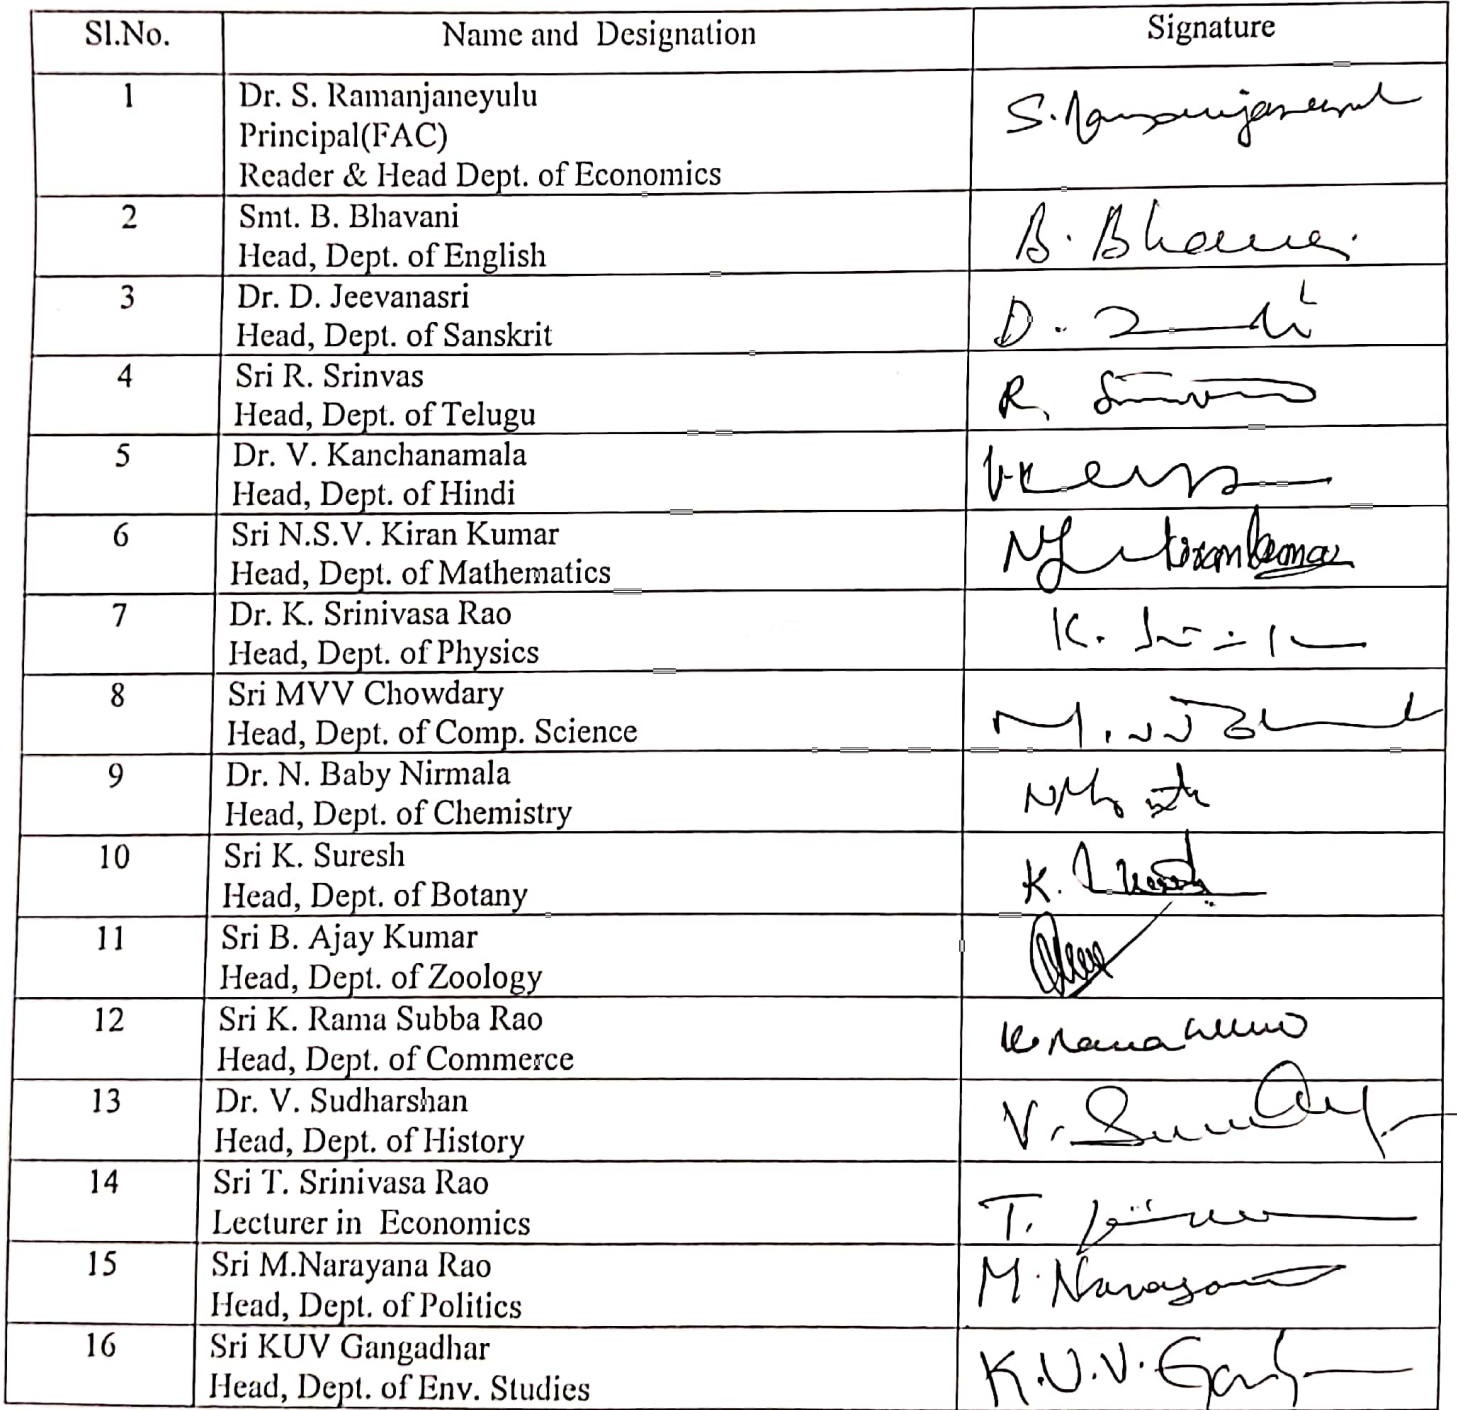 Sl.No. Name and Designation Signature
1 Dr. S. Ramanjaneyulu S. Ramanjaneyul
Principal(FAC)
Reader & Head Dept. of Economics
2 Smt. B. Bhavani B. Bhavani
Head, Dept. of English
3 Dr. D. Jeevanasri D.
Head, Dept. of Sanskrit
4 Sri R. Srinvas R.
Head, Dept. of Telugu
5 Dr. V. Kanchanamala
Head, Dept. of Hindi
6 Sri N.S.V. Kiran Kumar kirankumar
Head, Dept. of Mathematics
7 Dr. K. Srinivasa Rao K.
Head, Dept. of Physics
8 Sri MVV Chowdary
Head, Dept. of Comp. Science
9 Dr. N. Baby Nirmala
Head, Dept. of Chemistry
10 Sri K. Suresh K.
Head, Dept. of Botany
11 Sri B. Ajay Kumar
Head, Dept. of Zoology
12 Sri K. Rama Subba Rao K. Rama
Head, Dept. of Commerce
13 Dr. V. Sudharshan V.
Head, Dept. of History
14 Sri T. Srinivasa Rao T.
Lecturer in Economics
15 Sri M.Narayana Rao M. Narayana
Head, Dept. of Politics
16 Sri KUV Gangadhar K.U.V.
Head, Dept. of Env. Studies